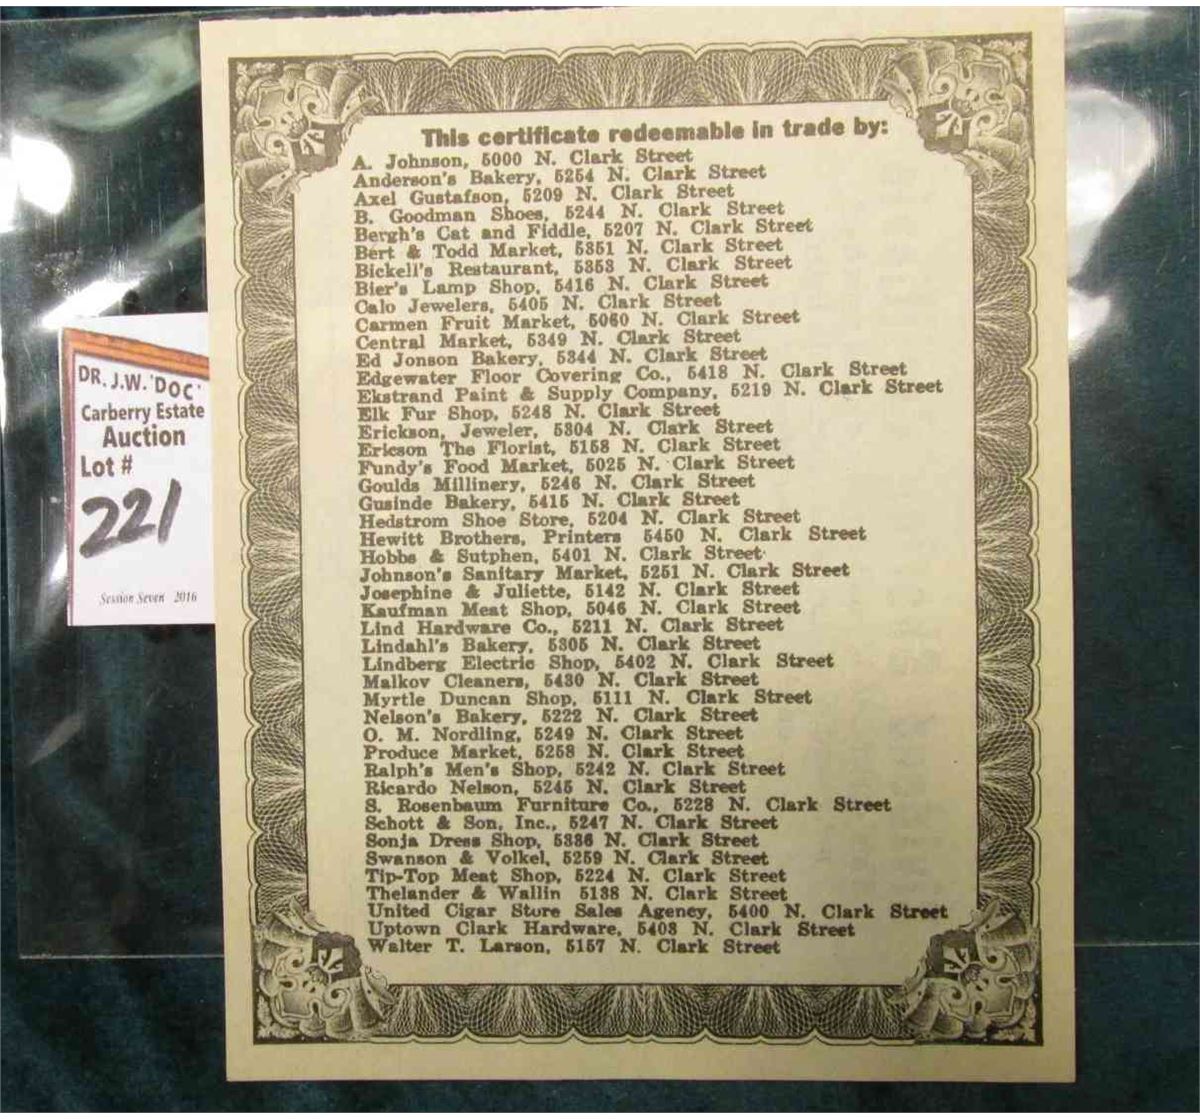 This certificate redeemable in trade by:
A. Johnson, 5000 N. Clark Street
Anderson's Bakery, 5254 N. Clark Street
Axel Gustafson, 5209 N. Clark Street
B. Goodman Shoes, 5244 N. Clark Street
Bergh's Cat and Fiddle, 5207 N. Clark Street
Bert & Todd Market, 5351 N. Clark Street
Bickell's Restaurant, 5353 N. Clark Street
Bier's Lamp Shop, 5416 N. Clark Street
Calo Jewelers, 5405 N. Clark Street
Carmen Fruit Market, 5060 N. Clark Street
Central Market, 5349 N. Clark Street
Ed Jonson Bakery, 5344 N. Clark Street
Edgewater Floor Covering Co., 5418 N. Clark Street
Ekstrand Paint & Supply Company, 5219 N. Clark Street
Elk Fur Shop, 5248 N. Clark Street
Erickson, Jeweler, 5304 N. Clark Street
Ericson The Florist, 5158 N. Clark Street
Fundy's Food Market, 5025 N. Clark Street
Goulds Millinery, 5246 N. Clark Street
Gusinde Bakery, 5415 N. Clark Street
Hedstrom Shoe Store, 5204 N. Clark Street
Hewitt Brothers, Printers 5450 N. Clark Street
Hobbs & Sutphen, 5401 N. Clark Street
Johnson's Sanitary Market, 5251 N. Clark Street
Josephine & Juliette, 5142 N. Clark Street
Kaufman Meat Shop, 5046 N. Clark Street
Lind Hardware Co., 5211 N. Clark Street
Lindahl's Bakery, 5305 N. Clark Street
Lindberg Electric Shop, 5402 N. Clark Street
Malkov Cleaners, 5430 N. Clark Street
Myrtle Duncan Shop, 5111 N. Clark Street
Nelson's Bakery, 5222 N. Clark Street
O. M. Nordling, 5249 N. Clark Street
Produce Market, 5258 N. Clark Street
Ralph's Men's Shop, 5242 N. Clark Street
Ricardo Nelson, 5245 N. Clark Street
S. Rosenbaum Furniture Co., 5228 N. Clark Street
Schott & Son, Inc., 5247 N. Clark Street
Sonja Dress Shop, 5336 N. Clark Street
Swanson & Volkel, 5259 N. Clark Street
Tip-Top Meat Shop, 5224 N. Clark Street
Thelander & Wallin 5138 N. Clark Street
United Cigar Store Sales Agency, 5400 N. Clark Street
Uptown Clark Hardware, 5408 N. Clark Street
Walter T. Larson, 5157 N. Clark Street
DR. J.W. 'DOC'
Carberry Estate
Auction
Lot #
221
Session Seven 2016